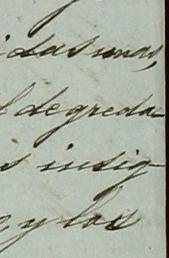 idas unas,
l de greda-
s insig
y los